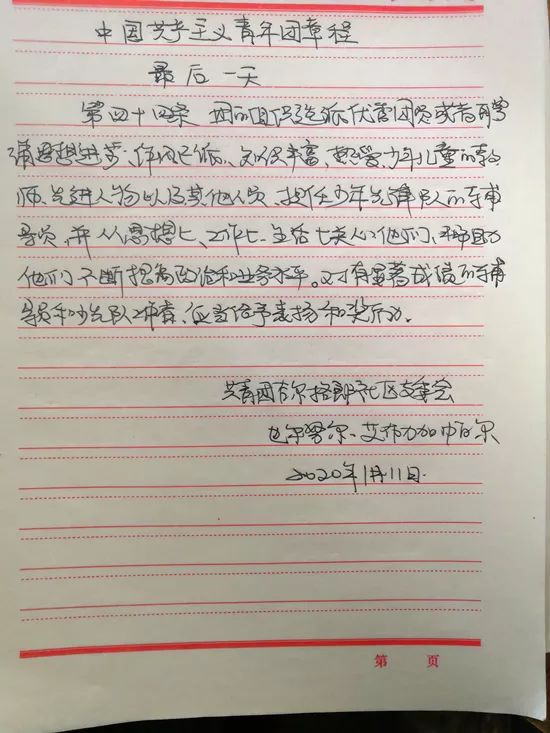 中国共产主义青年团章程
最后一天
第四十四条 团的组织选派优秀团员或者聘
请思想进步、作风正派、知识丰富、热爱少年儿童的教
师、先进人物以及其他人员、担任少年先锋队的辅
导员,并从思想上、工作上、生活上关心他们、帮助
他们不断提高政治和业务水平。对有显著成绩的辅
导员和少先队工作者、应当给予表扬和奖励。
共青团 格朗社区支委会
艾
2020年1月11日.
第 页